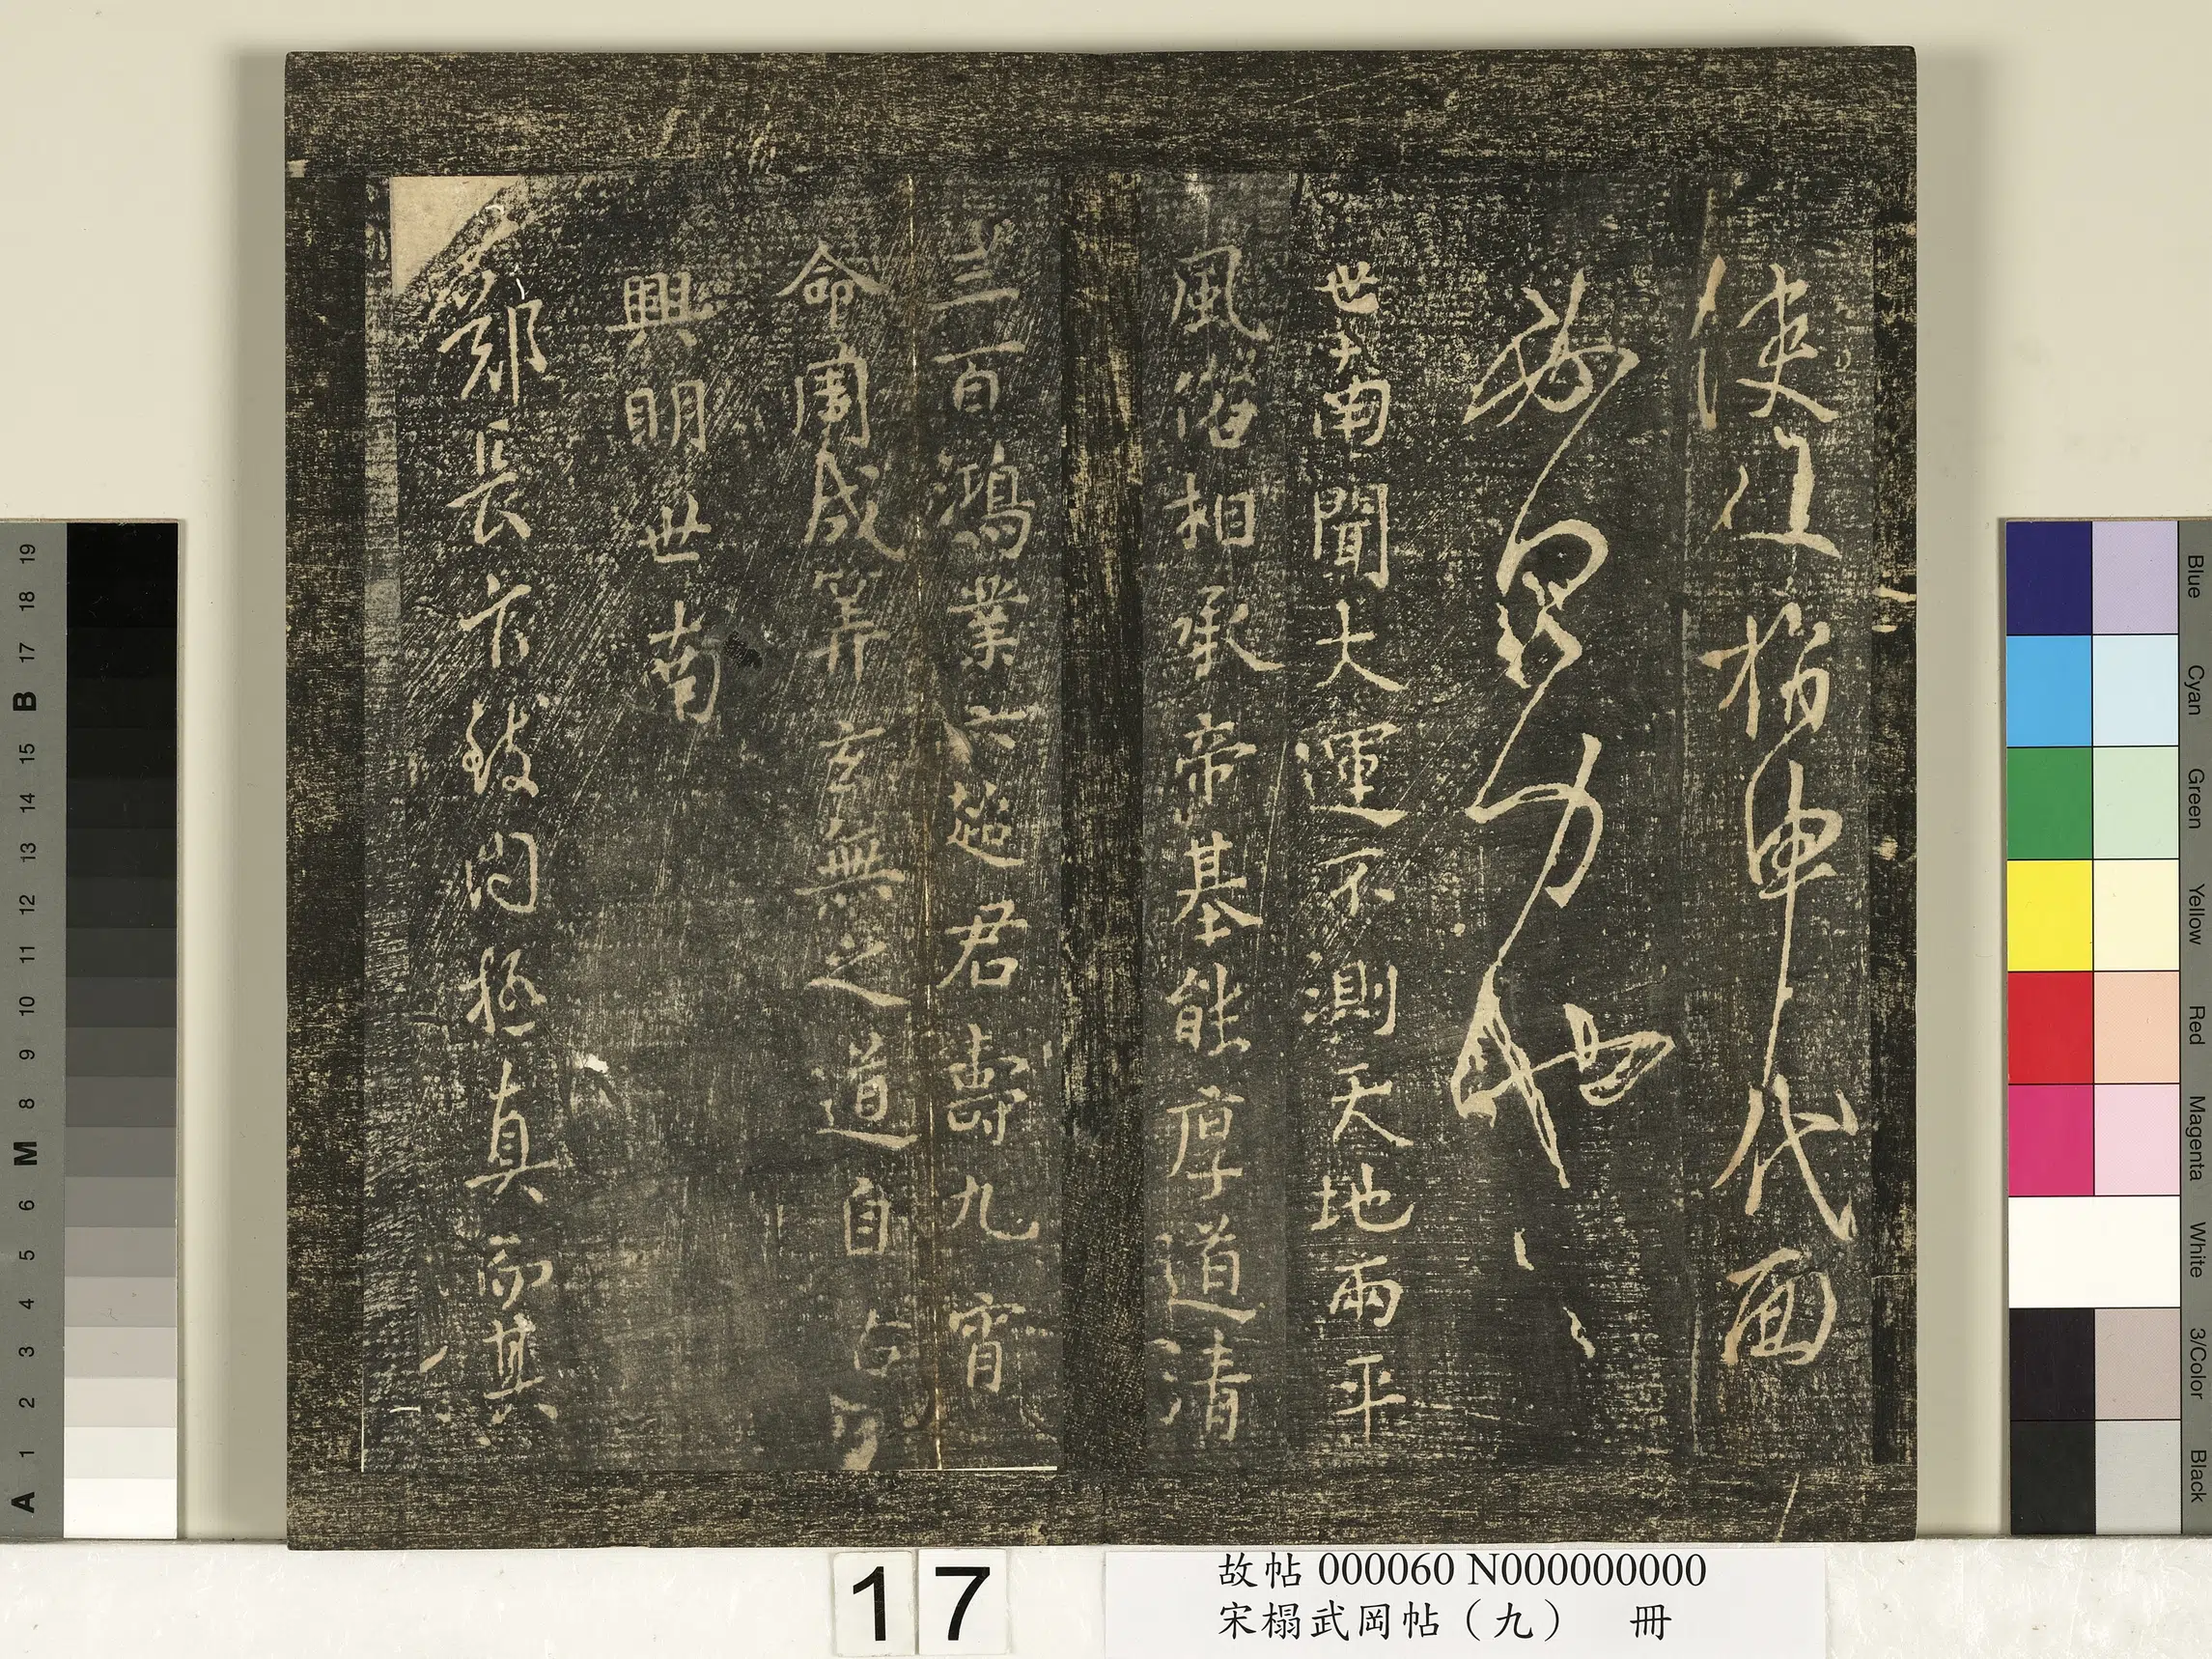 使往指申代面
力
世南聞大運不測天地兩平
風俗相承帝基能厚道清
三百鴻業六超君壽九霄
命周成算玄無之道自古
興明世南
鄭長官致問極真而其
17
故帖 000060 N000000000
宋榻武岡帖（九） 冊
19
18
17
B
15
14
13
12
11
10
9
8
M
6
5
4
3
2
1
A
Blue
Cyan
Green
Yellow
Red
Magenta
White
3/Color
Black